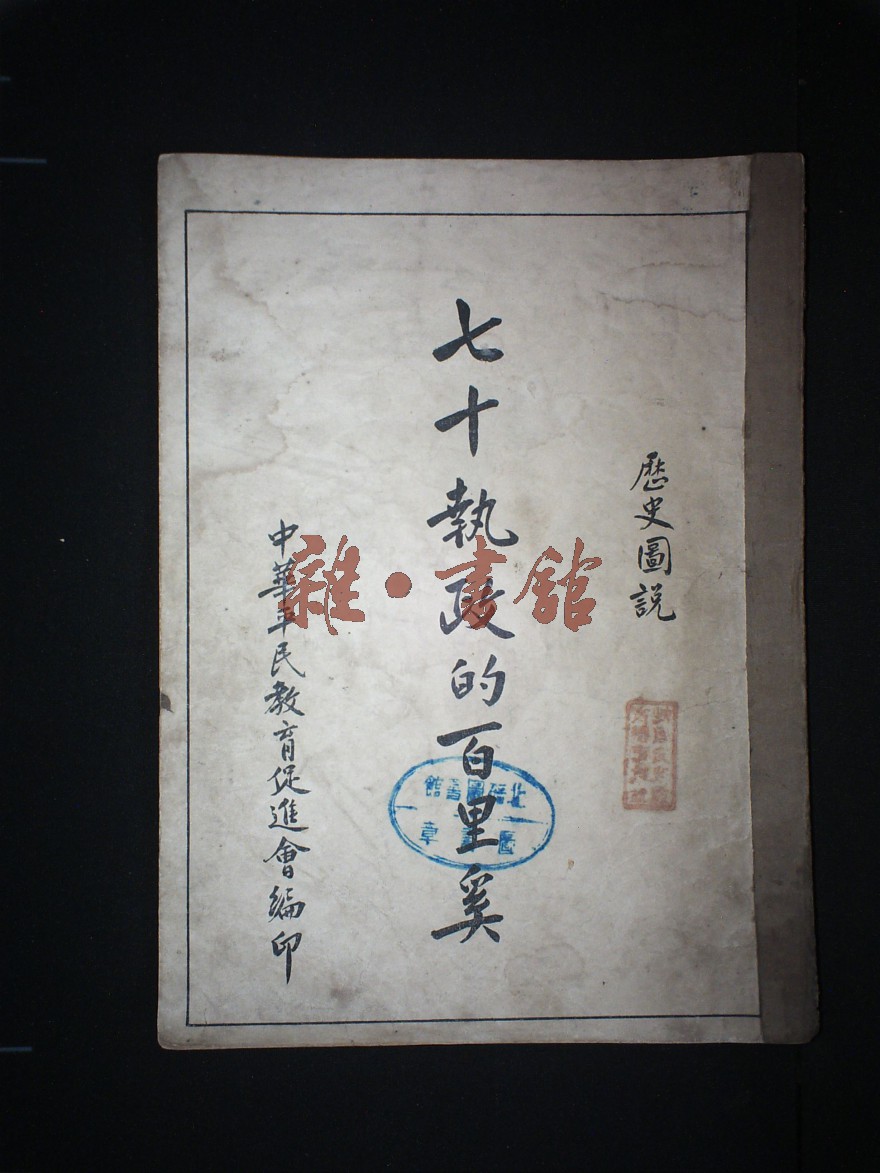 歷史圖説
七十執政的百里奚
中華平民教育促進會編印
雜·書館
圖書館
章